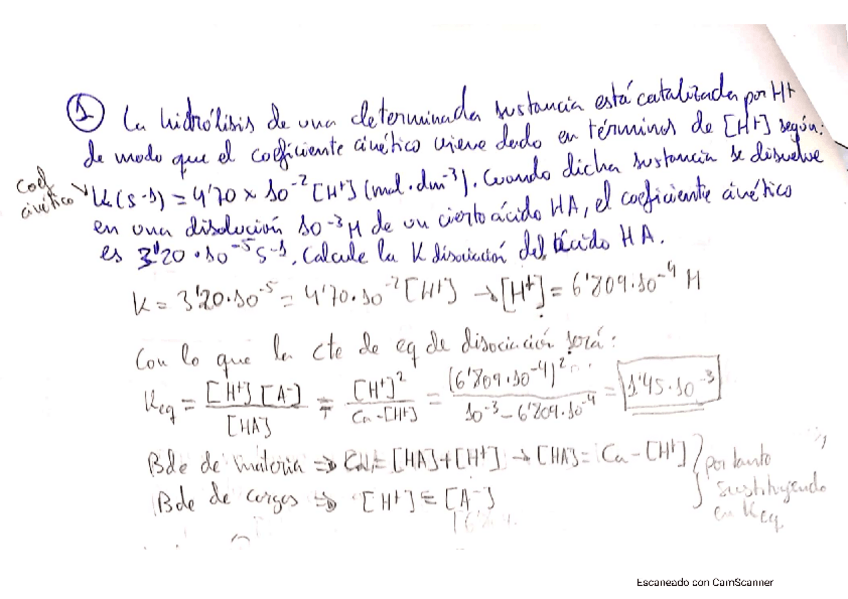 ① La hidrólisis de una determinada sustancia está catalizada por H+
de modo que el coeficiente cinético viene dado en términos de [H+] según:
coef. cinético
K(s-1) = 4'70 x 10^-2 [H+] (mol·dm^-3). Cuando dicha sustancia se disuelve
en una disolución 10^-3 M de un cierto ácido HA, el coeficiente cinético
es 3'20·10^-5 s^-1. Calcule la K disociación del ácido HA.
K = 3'20·10^-5 = 4'70·10^-2 [H+] → [H+] = 6'809·10^-4 M
Con lo que la cte de eq de disociación será:
Keq = [H+][A-] / [HA] = [H+]^2 / Ca-[H+] = (6'809·10^-4)^2 / 10^-3 - 6'809·10^-4 = 1'45·10^-3
Bde de materia ⇒ = [HA]+[H+] → [HA] = Ca-[H+]
Bde de cargas ⇒ [H+] = [A-]
por tanto
sustituyendo
en Keq
Escaneado con CamScanner